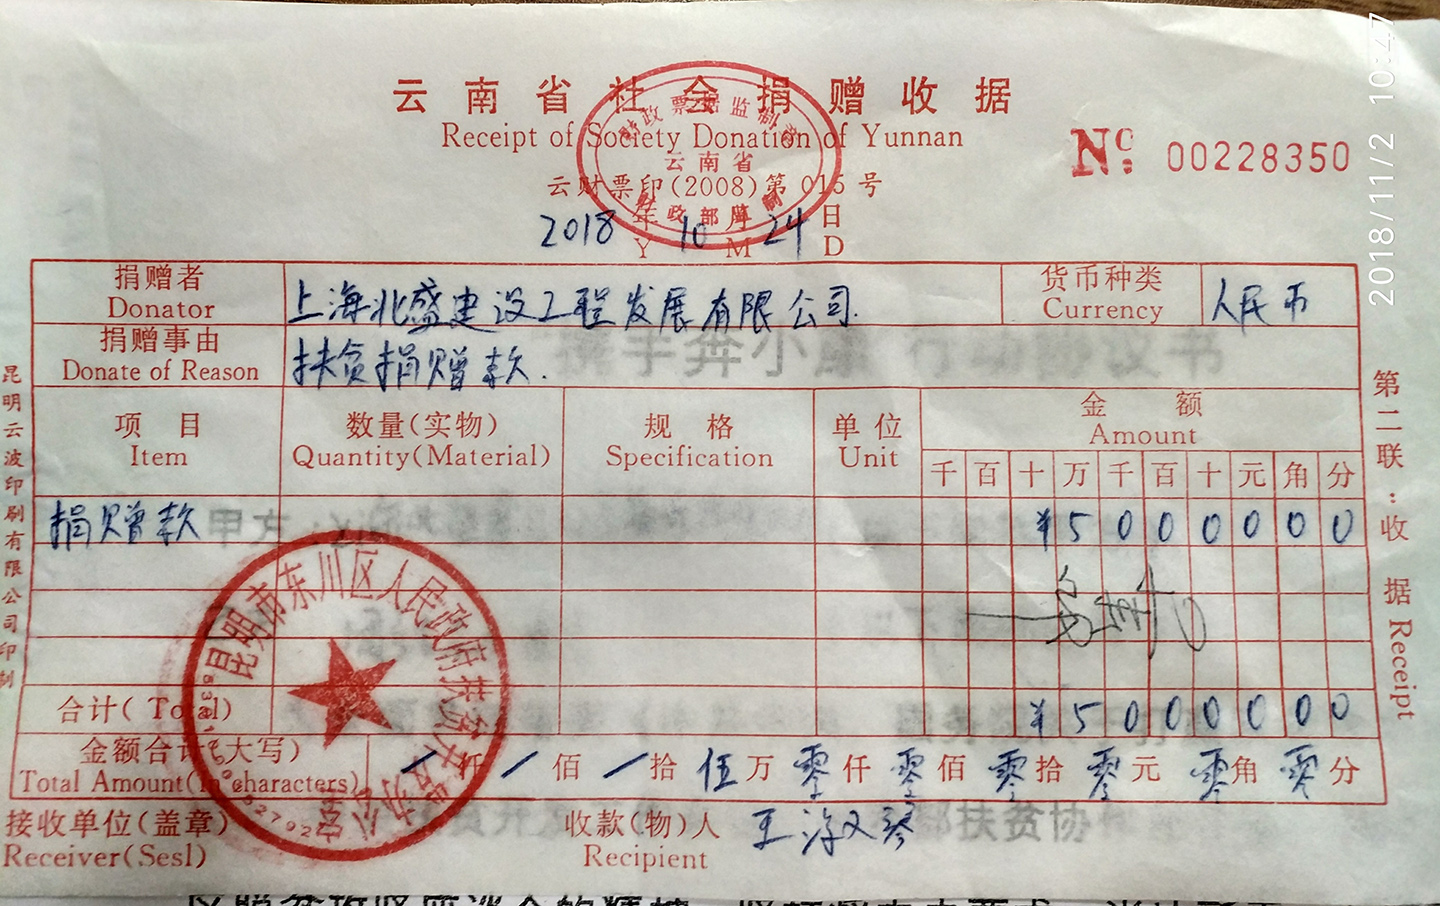 云南省社会捐赠收据
Receipt of Society Donation of Yunnan
№: 00228350
云财票印(2008)第015号
2018年10月24日
Y M D
捐赠者 上海北盛建设工程发展有限公司. 货币种类 人民币
Donator Currency
捐赠事由 扶贫捐赠款.
Donate of Reason
项目 数量(实物) 规格 单位 金额
Item Quantity(Material) Specification Unit Amount
千 百 十 万 千 百 十 元 角 分
捐赠款 ¥ 5 0 0 0 0 0 0
合计( Total) ¥ 5 0 0 0 0 0 0
金额合计(大写) / 仟 / 佰 / 拾 伍 万 零 仟 零 佰 零 拾 零 元 零 角 零 分
Total Amount(In characters)
接收单位(盖章) 收款(物)人
Receiver(Sesl) Recipient
昆明云波印刷有限公司印制
第二联：收据 Receipt
云南省
昆明市东川区人民政府扶贫开发办公室
2018/11/2 10:47